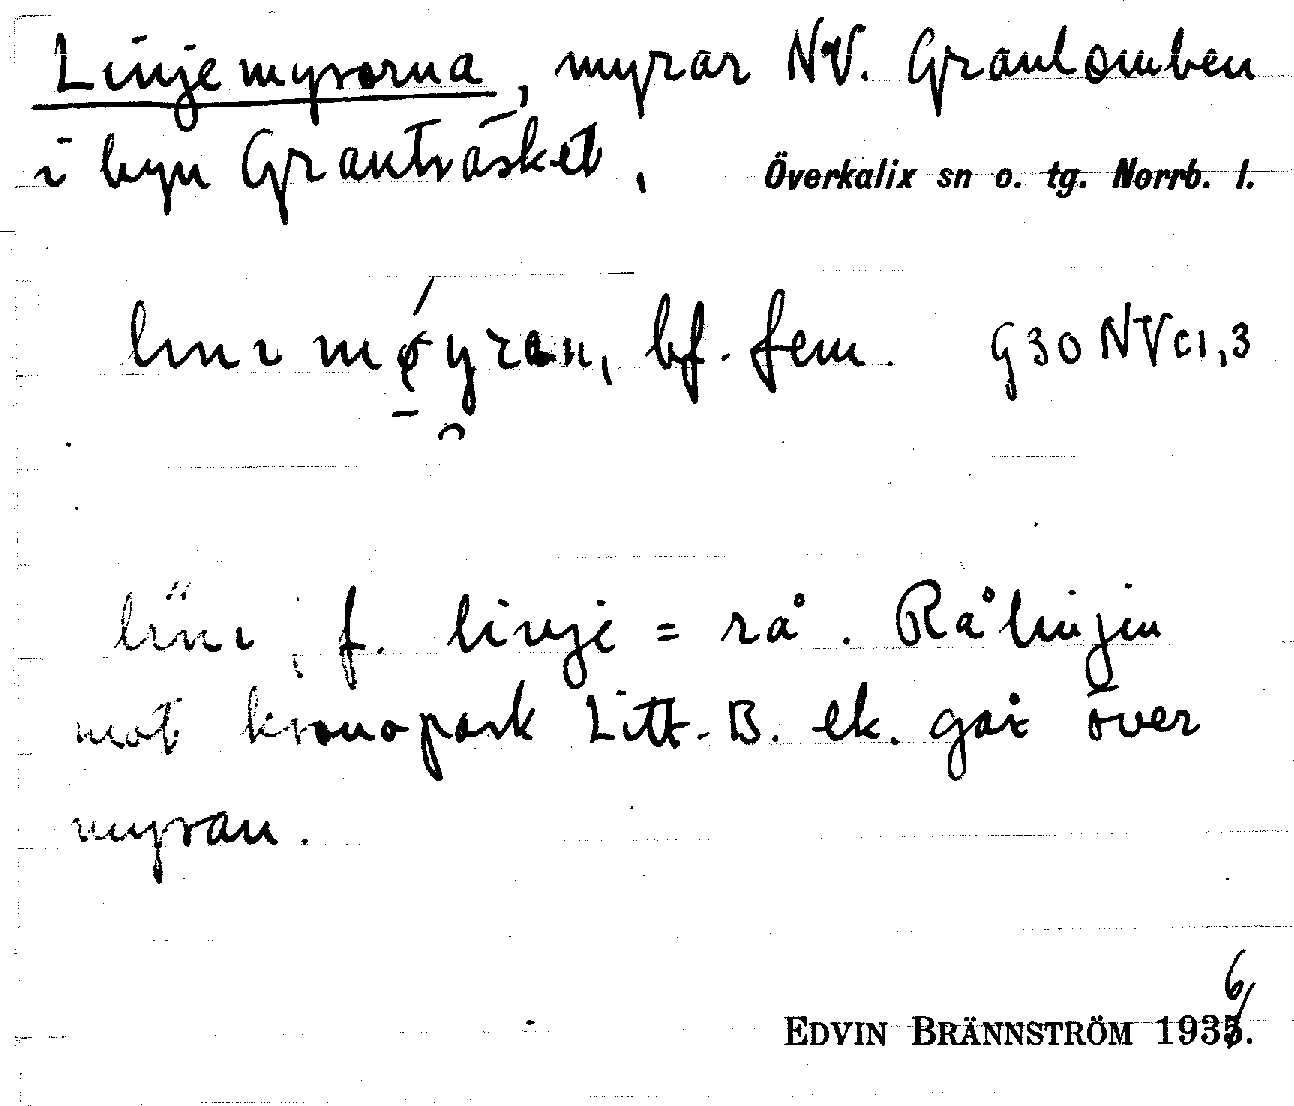 Linjemyrorna, myrar NV. Granlomben
i byn Granträsket.
Överkalix sn o. tg. Norrb. l.
bf. fem. G30 NVc1,3
f. linje = rå. Rålinjen
mot kronopark Litt. B. ek. går över
myran.
6
EDVIN BRÄNNSTRÖM 1935.